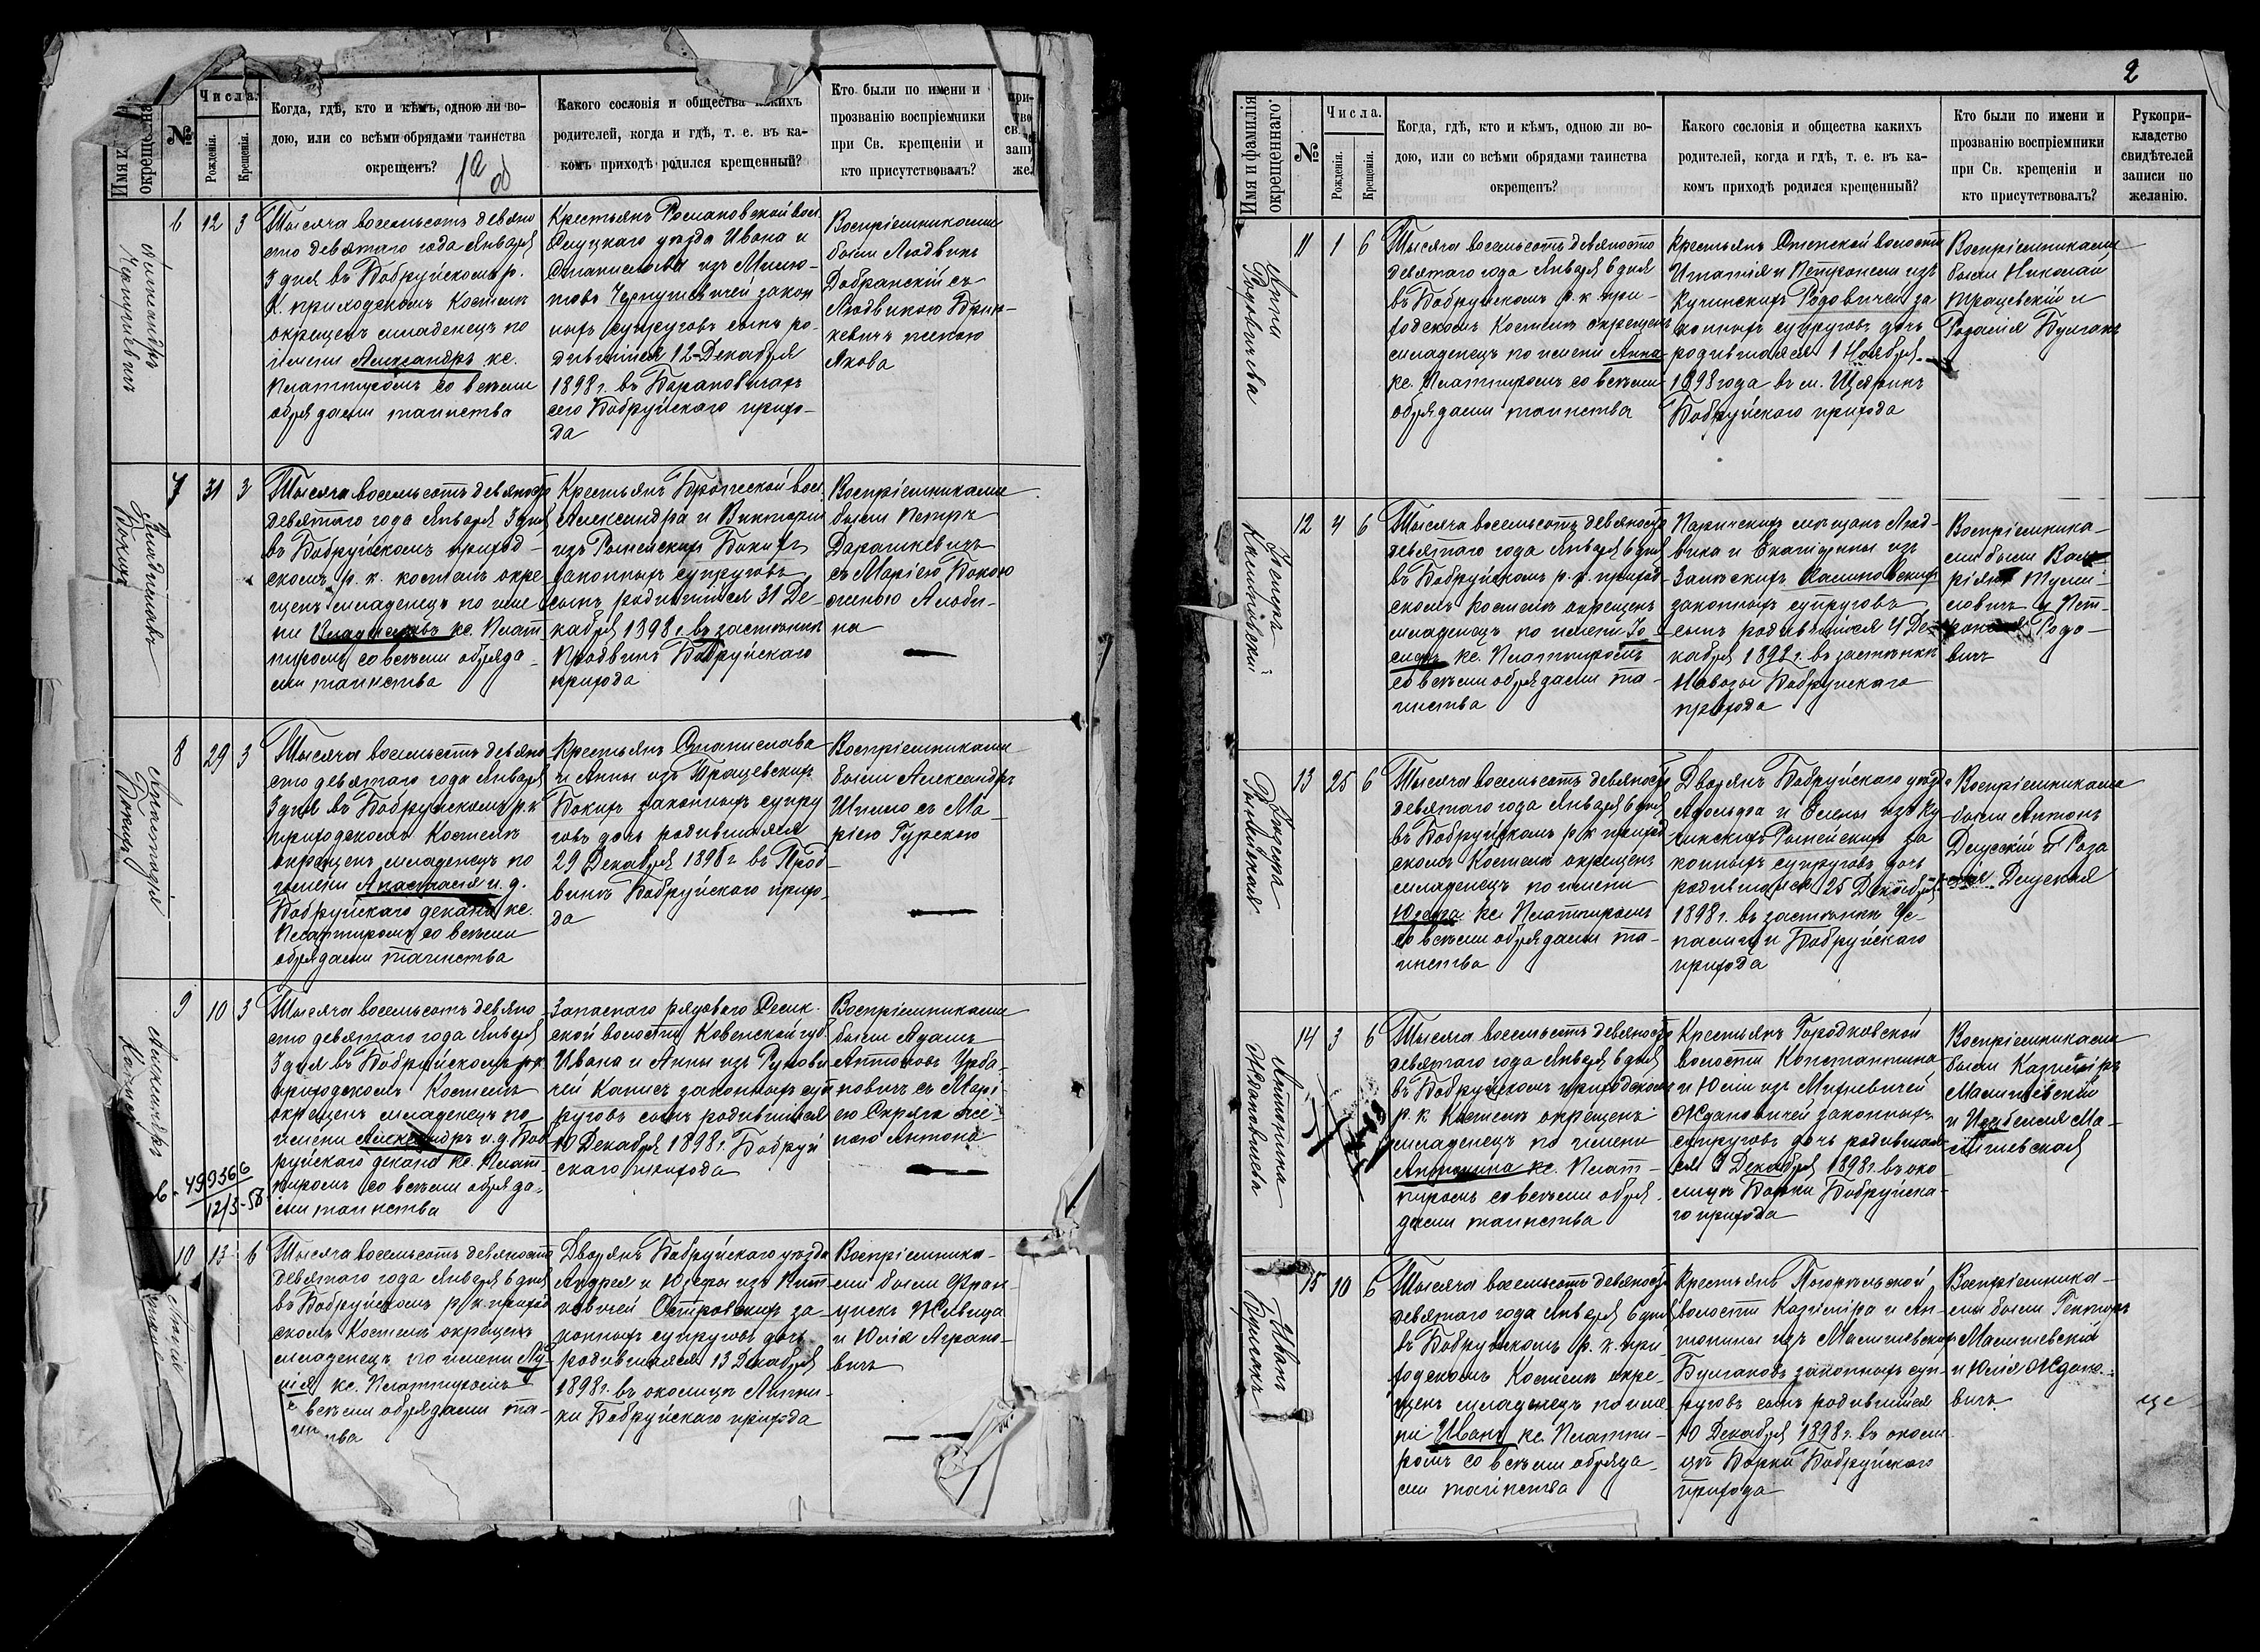 Имя и
окрещеннаго
№
Числа.
Рожденія.
Крещенія.
Когда, гдѣ, кто и кѣмъ, одною ли во-
дою, или со всѣми обрядами таинства
окрещенъ?
1 об
Какого сословія и общества какихъ
родителей, когда и гдѣ, т. е. въ ка-
комъ приходѣ родился крещенный?
Кто были по имени и
прозванію воспріемники
при Св. крещеніи и
кто присутствовалъ?
Александръ
6
12
3
Тысяча восемьсотъ девяно
сто девятаго года Января
3 дня въ Бобруйскомъ р.
к. приходскомъ Костелѣ
окрещенъ младенецъ по
имени Александръ кс.
Платтиромъ со всѣми
обрядами таинства
Крестьянъ Романовской вол.
Слуцкаго уѣзда Ивана и
Станиславы изъ Милю-
товъ Чернушевичей закон
ныхъ супруговъ сынъ ро-
дившійся 12 Декабря
1898 г. въ Барановичахъ
сего Бобруйскаго прихо-
да
Воспріемниками
были Людвикъ
Добранскій съ
Людвикою
женою
Якова
Владиславъ
Бокій
7
31
3
Тысяча восемьсотъ девяносто
девятаго года Января 3 дня
въ Бобруйскомъ приход-
скомъ р. к. костелѣ окре
щенъ младенецъ по име
ни Владиславъ кс. Плат
тиромъ со всѣми обряда-
ми таинства
Крестьянъ Брожской вол.
Александра и Викторіи
изъ Рымейскихъ Бокихъ
законныхъ супруговъ
сынъ родившійся 31 Де
кабря 1898 г. въ застѣнкѣ
Продвинъ Бобруйскаго
прихода
Воспріемниками
были Петръ
Дарашкевичъ
съ Маріею Бокою
женою Альби-
на
Анастасія
Бокій
8
29
3
Тысяча восемьсотъ девяно
сто девятаго года Января
3 дня въ Бобруйскомъ р. к
приходскомъ Костелѣ
окрещенъ младенецъ по
имени Анастасія и. д.
Бобруйскаго декана кс.
Платтиромъ со всѣми
обрядами таинства
Крестьянъ Станислава
и Анны изъ Трацевскихъ
Бокихъ законныхъ супру
говъ дочь родившаяся
29 Декабря 1898 г въ Прод-
винѣ Бобруйскаго прихо-
да
Воспріемниками
были Александръ
Шимо съ Ма-
ріею Гурскою
Александръ
9
10
3
Тысяча восемьсотъ девяно
сто девятаго года Января
3 дня въ Бобруйскомъ р. к
приходскомъ Костелѣ
окрещенъ младенецъ по
имени Александръ и. д. Боб
руйскаго декана кс. Плат
тиромъ со всѣми обряда-
ми таинства
499366
12/5-58
Запаснаго рядового
ской волости Ковенской губ.
Ивана и Анны изъ
чей Капис законныхъ суп
руговъ сынъ родившійся
10 Декабря 1898 г. Бобруй
скаго прихода
Воспріемниками
были Адамъ
Антоновъ Урба-
новичъ съ Марі-
ею Скряга же-
ною Антона
10
13
6
Тысяча восемьсотъ девяносто
девятаго года Января 6 дня
въ Бобруйскомъ р. к. приход
скомъ Костелѣ окрещенъ
младенецъ по имени
кс. Платтиромъ
всѣми обрядами та-
инства
Дворянъ Бобруйскаго уѣзда
Андрея и Юзефы изъ
Островскихъ за-
конныхъ супруговъ дочь
родившаяся 13 Декабря
1898 г. въ околицѣ
Бобруйскаго прихода
Воспріемника-
ми были Фран-
цискъ Живица
и Юлія
вичъ
2
Имя и фамилія
окрещеннаго.
№
Числа.
Рожденія.
Крещенія.
Когда, гдѣ, кто и кѣмъ, одною ли во-
дою, или со всѣми обрядами таинства
окрещенъ?
Какого сословія и общества какихъ
родителей, когда и гдѣ, т. е. въ ка-
комъ приходѣ родился крещенный?
Кто были по имени и
прозванію воспріемники
при Св. крещеніи и
кто присутствовалъ?
Рукопри-
кладство
свидѣтелей
записи по
желанію.
Анна
Родовичъ
11
1
6
Тысяча восемьсотъ девяносто
девятаго года Января 6 дня
въ Бобруйскомъ р. к. при-
ходскомъ Костелѣ окрещенъ
младенецъ по имени Анна
кс. Платтиромъ со всѣми
обрядами таинства
Крестьянъ волости
Игнатія и Петронели изъ
Кучинскихъ Родовичей за
конныхъ супруговъ дочь
родившаяся 1 Ноября
1898 года въ м. Щедринѣ
Бобруйскаго прихода
Воспріемниками
были Николай
Трацевскій и
Розалія Булгакъ
Іосифъ
Калиновскій
12
4
6
Тысяча восемьсотъ девяносто
девятаго года Января 6 дня
въ Бобруйскомъ р. к. приход
скомъ Костелѣ окрещенъ
младенецъ по имени Іо-
сифъ кс. Платтиромъ
со всѣми обрядами та-
инства
Паричскихъ мѣщанъ Люд-
вика и изъ
Калиновскихъ
законныхъ супруговъ
сынъ родившійся 4 Де-
кабря 1898 г. въ застѣнкѣ
Навозы Бобруйскаго
прихода
Воспріемника-
ми были
и Пет-
Родо-
вичъ
Юзефа
13
25
6
Тысяча восемьсотъ девяносто
девятаго года Января 6 дня
въ Бобруйскомъ р. к приход
скомъ Костелѣ окрещенъ
младенецъ по имени
Юзефа кс. Платтиромъ
со всѣми обрядами та-
инства
Дворянъ Бобруйскаго уѣзда
Адольфа и Елены изъ Ку
чинскихъ Рымейскихъ за
конныхъ супруговъ дочь
родившаяся 25 Декабря
1898 г. въ застѣнкѣ
Бобруйскаго
прихода
Воспріемниками
были Антонъ
и Роза
лія
Антонина
Ждановичъ
14
3
6
Тысяча восемьсотъ девяносто
девятаго года Января 6 дня
въ Бобруйскомъ приходскомъ
р. к Костелѣ окрещенъ
младенецъ по имени
Антонина кс. Плат-
тиромъ со всѣми обря
дами таинства
Крестьянъ Городковской
волости Константина
и Юліи изъ Михневичей
Ждановичей законныхъ
супруговъ дочь родившая
ся 3 Декабря 1898 г. въ око-
лицѣ Борки Бобруйска-
го прихода
Воспріемниками
были Казиміръ
Малишевскій
и Изабелла Ма-
лишевская
Иванъ
Булгакъ
15
10
6
Тысяча восемьсотъ девяносто
девятаго года Января 6 дня
въ Бобруйскомъ р. к. при
ходскомъ Костелѣ окре-
щенъ младенецъ по име
ни Иванъ кс. Платти-
ромъ со всѣми обряда-
ми таинства
Крестьянъ
волости Казиміра и Ан-
тонины изъ Малишевскихъ
Булгаковъ законныхъ суп-
руговъ сынъ родившійся
10 Декабря 1898 г. въ околи
цѣ Борки Бобруйскаго
прихода
Воспріемника-
ми были
Малишевскій
и Юлія Ждано-
вичъ